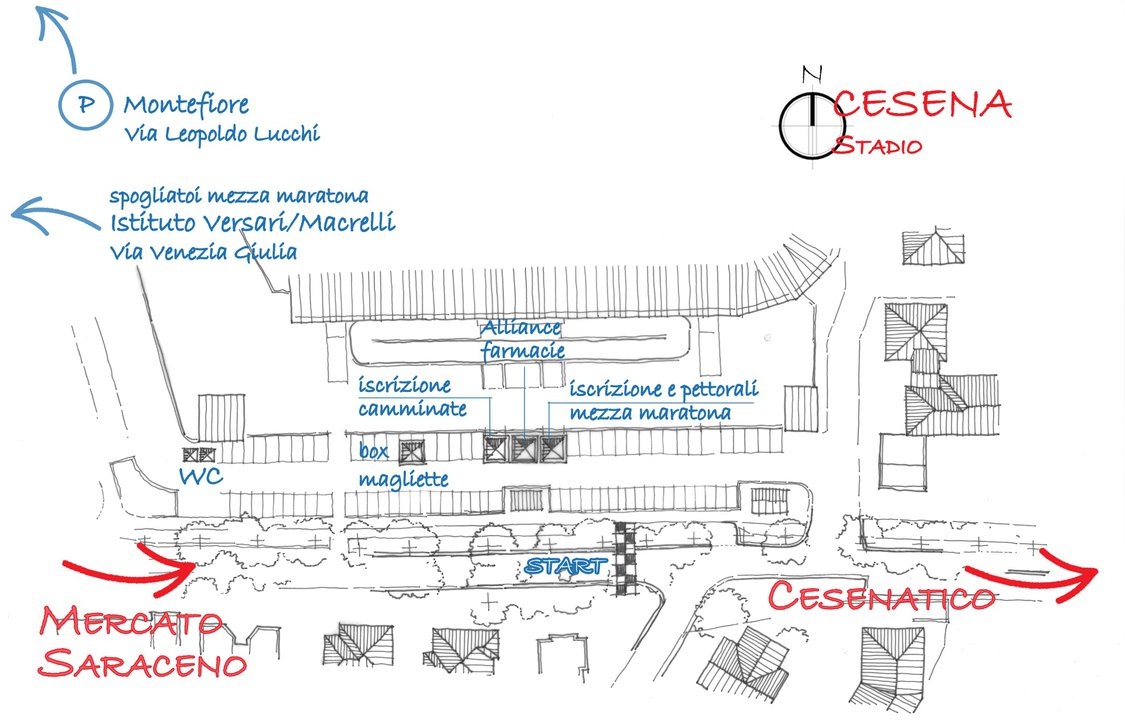 N
CESENA
STADIO
P
Montefiore
Via Leopoldo Lucchi
spogliatoi mezza maratona
Istituto Versari/Macrelli
Via Venezia Giulia
Alliance
farmacie
iscrizione
camminate
iscrizione e pettorali
mezza maratona
box
magliette
WC
START
MERCATO
SARACENO
CESENATICO